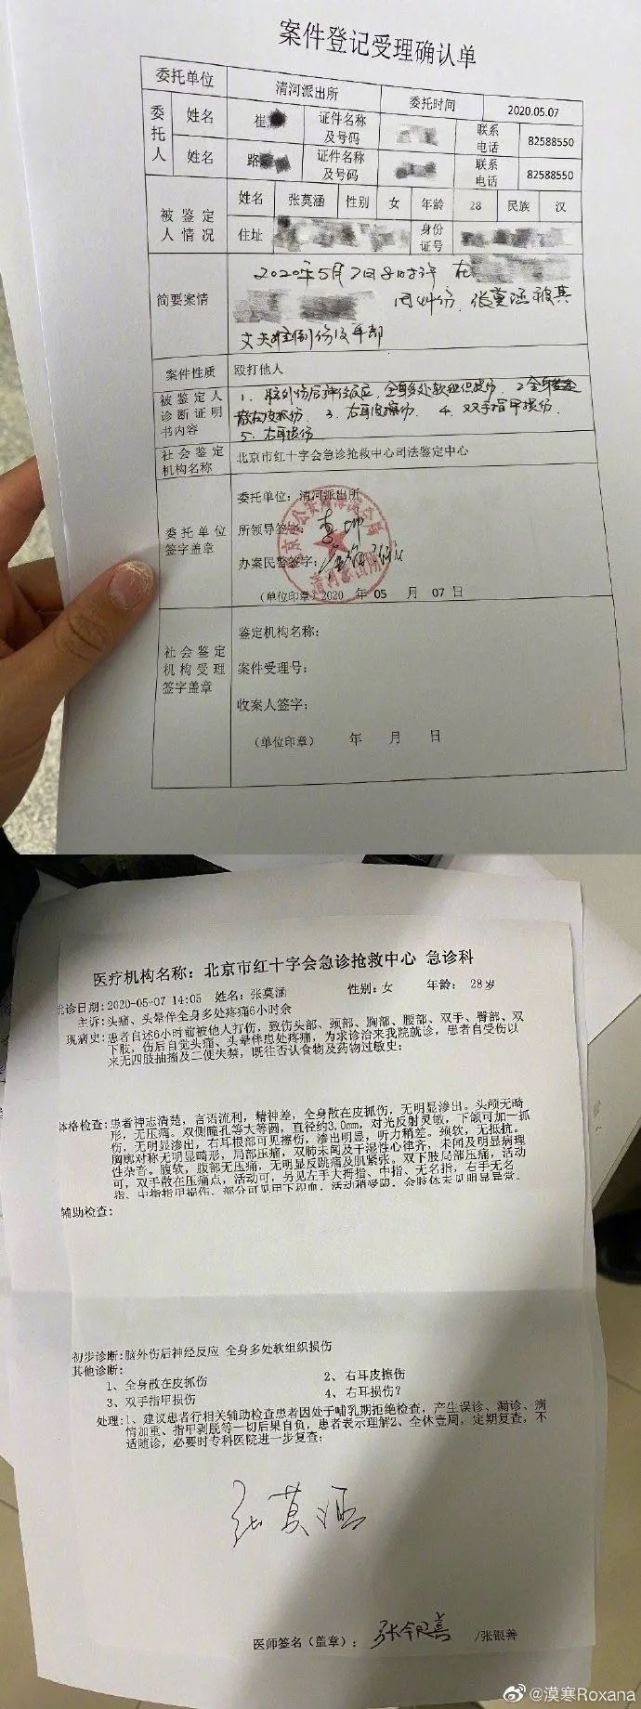 案件登记受理确认单
委托单位 清河派出所 委托时间 2020.05.07
委托人 姓名 崔 证件名称及号码 联系电话 82588550
姓名 路 证件名称及号码 联系电话 82588550
被鉴定人情况 姓名 张莫涵 性别 女 年龄 28 民族 汉
住址 身份证号
简要案情 2020年5月7日8时许 在
张莫涵被其
丈夫
案件性质 殴打他人
被鉴定人诊断证明书内容 1、脑外伤后神经反应,全身多处软组织损伤 2全身
散在皮抓伤 3、右耳皮擦伤 4、双手指甲损伤
5、右耳损伤
社会鉴定机构名称 北京市红十字会急诊抢救中心司法鉴定中心
委托单位签字盖章 委托单位:清河派出所
所领导签字:
办案民警签字:
(单位印章)2020 年 05 月 07 日
清河派出所
社会鉴定机构受理签字盖章 鉴定机构名称:
案件受理号:
收案人签字:
(单位印章) 年 月 日
医疗机构名称:北京市红十字会急诊抢救中心 急诊科
诊日期:2020-05-07 14:05 姓名:张莫涵 性别:女 年龄: 28岁
主诉:头痛、头晕伴全身多处疼痛6小时余
现病史:患者自述6小时前被他人打伤,致伤头部、颈部、胸部、腰部、双手、臀部、双
下肢,伤后自觉头痛、头晕伴患处疼痛,为求诊治来我院就诊,患者自受伤以
来无四肢抽搐及二便失禁,既往否认食物及药物过敏史;
体格检查:患者神志清楚,言语流利,精神差,全身散在皮抓伤,无明显渗出。头颅无畸
形,无压痛。双侧瞳孔等大等圆,直径约3.0mm,对光反射灵敏,下颌可加一抓
伤,无明显渗出,右耳根部可见擦伤,渗出明显,听力稍差。颈软,无抵抗。
胸廓对称无明显畸形,局部压痛,双肺未闻及干湿性心律齐,未闻及明显病理
性杂音。腹软,腹部无压痛,无明显反跳痛及肌紧张,双下肢局部压痛,活动
可,双手散在压痛点,活动可,另见左手大拇指、中指、无名指,右手无名
指、中指指甲损伤,部分可见甲下积血,活动稍受限,余肢体未见明显异常。
辅助检查:
初步诊断:脑外伤后神经反应 全身多处软组织损伤
其他诊断:
1、全身散在皮抓伤 2、右耳皮擦伤
3、双手指甲损伤 4、右耳损伤?
处理:1、建议患者行相关辅助检查患者因处于哺乳期拒绝检查,产生误诊、漏诊、病
情加重、指甲剥脱等一切后果自负,患者表示理解2、全休壹周,定期复查,不
适随诊,必要时专科医院进一步复查;
张莫涵
医师签名(盖章): 张银善 /张银善
@漠寒Roxana